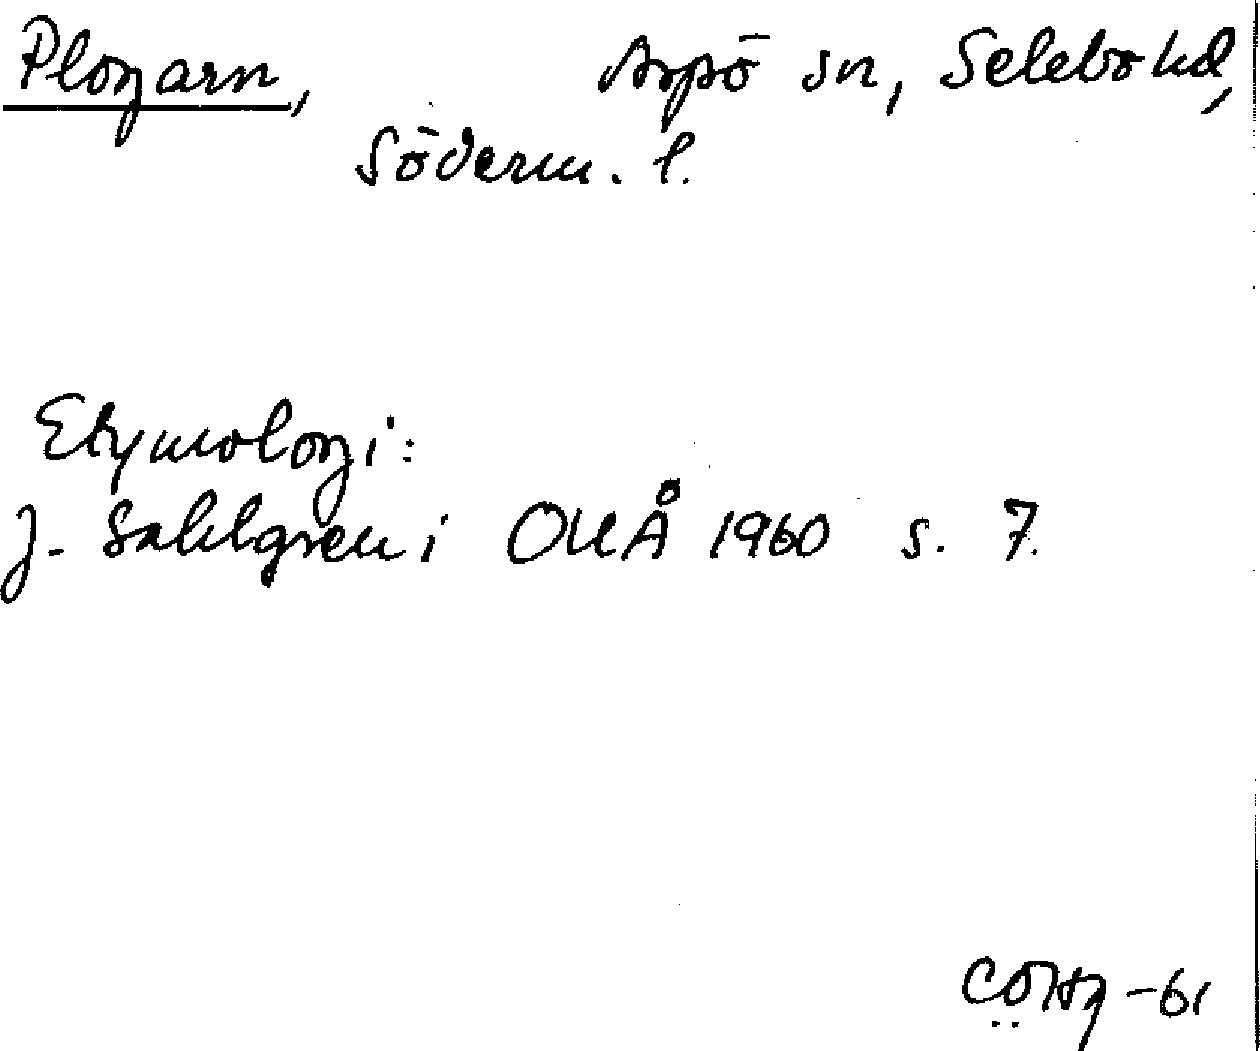 Plogarn, Aspö sn, Selebo hd,
Söderm. l.
Etymologi:
J. Sahlgren i OUÅ 1960 s. 7.
-61